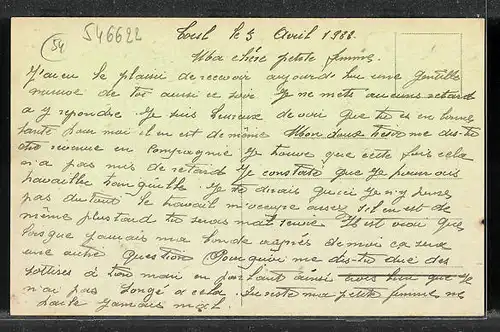 54
546622
Toul le 3 Avril 1922.
Ma chère petite femme.
J'ai eu le plaisir de recevoir aujourd'hui une gentille
de toi aussi ce soir. Je ne mets aucuns retard
a y repondre. Je suis heureux de voir que tu es en bonne
santé pour moi il en est de même. Mon doux me dis-tu
être revenue en compagnie. Je trouve que cette fois cela
n'a pas mis de retard. Je constate que je pourrais
travailler tranquille. Je te dirais qu'ici je n'y pense
pas du tout. Le travail m'occupe assez s'il en est de
même plus tard tu serais mal servie. Il est vrai que
lorsque j'aurais ma blonde auprès de moi ça sera
une autre question. Pourquoi me dis-tu dire des
sottises à ton mari en parlant ainsi crois bien que je
n'ai pas songé a cela. Du reste ma petite femme ne
parle jamais mal.